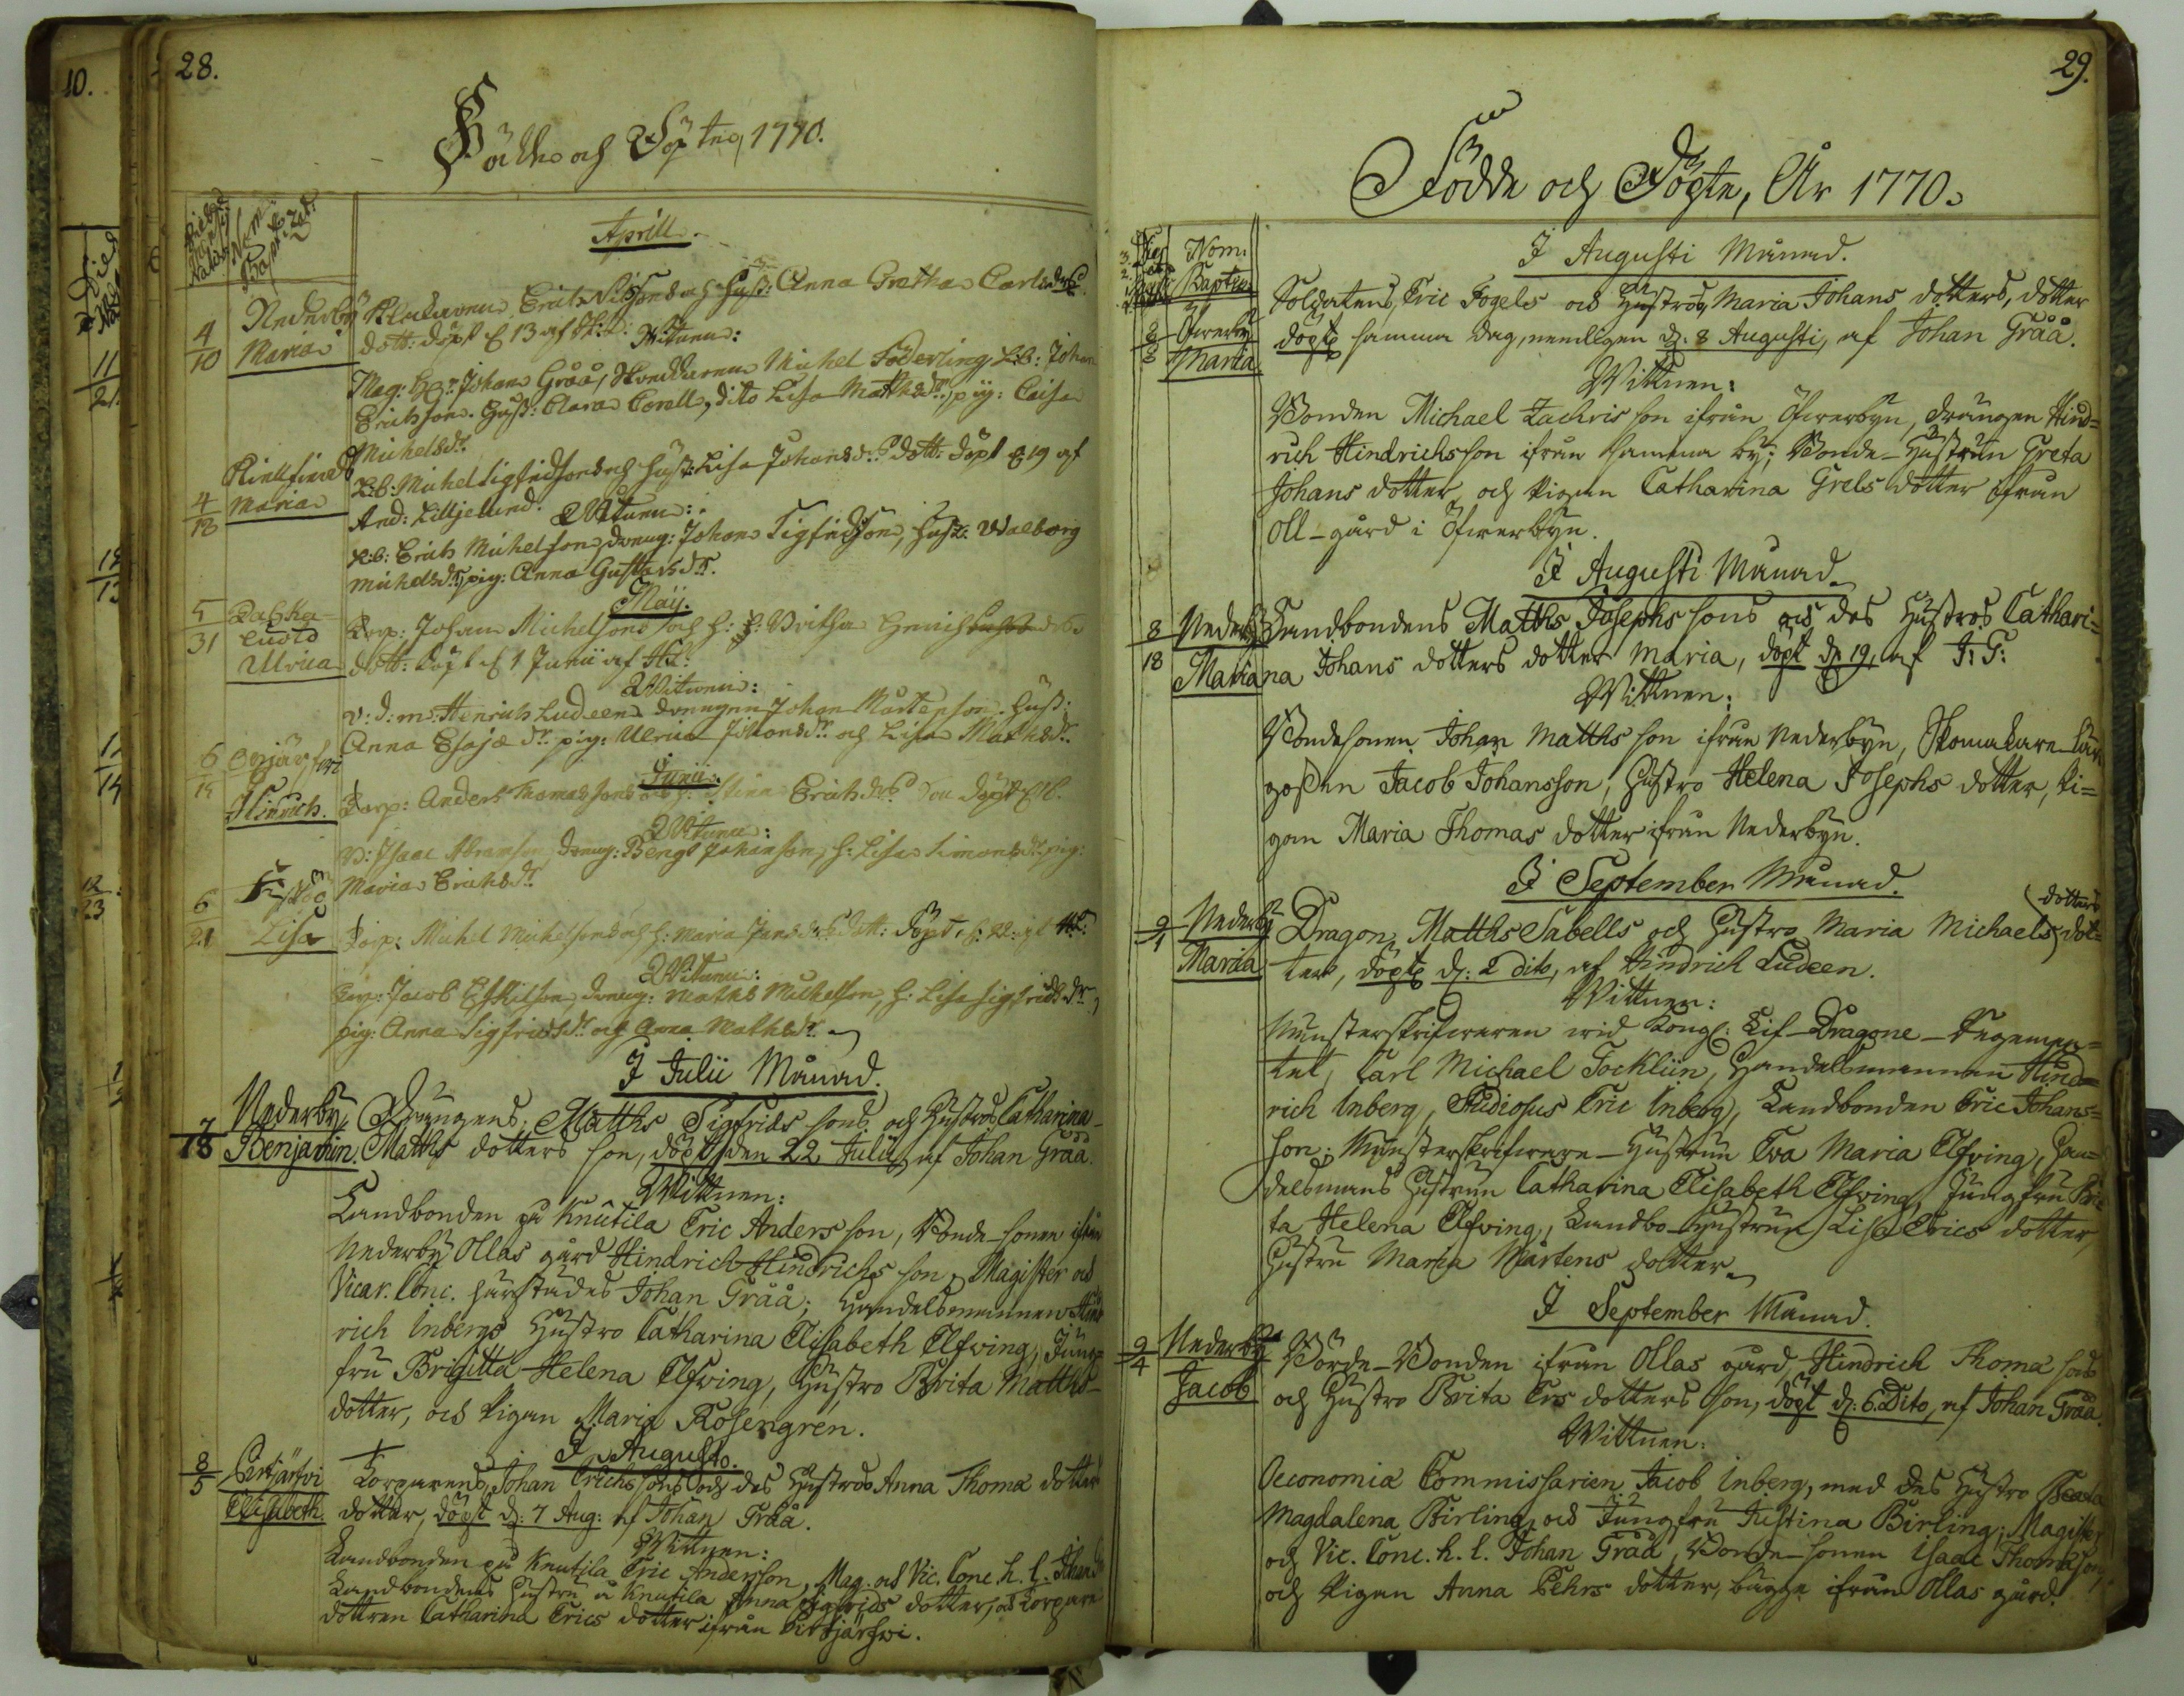 10.
28.
Födde och Döpte, 1770.
Aprill.
Nederby
4/10 Maria
Klockaren Erich Nilssons och Hust: Anna Greta Carlsdrs
dott: döpt d 13 af
Witnen:
Mag: Hr Johan Gråå, Skreddaren Michel Söderling, Lb: Johan
Erichson. Hust: Clara Corell, dito Lisa Mathsdr, pig: Caisa
Michelsdr.
4/18 Maria
Lb: Michel Sigfridsons och Hust: Lisa Johansdrs dott: döpt d 19 af
And: Lilljelund. Witnen:
Lb: Erich Michelson, dreng: Johan Sigfridson, Hust: Walborg
Michelsdr, pig: Anna Gustavsdr.
Maij.
5/31 Ulrica
Torp: Johan Michelsons och H: Britha
dott: döpt d 1 Junii af
Witnen:
v: d: m: Henrich Ludeen drengen Johan Mårtenson. Hust:
Anna Esajæ dr. pig: Ulrica Johansdr och Lisa Mathsdr.
Junii.
6/14 Hinrich.
Torp: Anders Thomassons och H: Stina Erichsdrs Son döpt
Witnen:
Isaac Abramson, dreng: Bengt Johanson, H: Lisa Simonsdr. pig:
Maria Erichsdr.
6/21 Lisa
Torp: Michel Michelsons och H: Maria Jansdrs dott: döpt, d: 22: af
Witnen:
Torp: Jacob Eskilson, dreng: Maths Michelson, H: Lisa Sigfridsdr,
pig: Anna Sigfridsdr och Anna Mathsdr.
I Julii Månad.
7/18 Nederby Benjamin.
Drängens, Matths Sigfrids sons och Hustros Catharina
Matths dotters son, döpt den 22 Julii, af Johan Gråå.
Wittnen:
Landbonden på Knutila Eric Anders son, Bonde-sonen ifrån
Nederby Ollas gård Hindrich Hindrichs son, Magister och
Vicar. Conc. härstädes Johan Gråå; Handelsmannen Hind
rich Inbergs Hustro Catharina Elisabeth Elfving, Jung=
fru Brigitta Helena Elfving, Hustro Brita Matths
dotter, och Pigan Maria Rosengren.
I Augusto.
8/5 Pirtjärfvi Elisabeth.
Torparens, Johan Erichs sons och des Hustros Anna Thomæ dotters
dotter, döpt d: 7 Aug: af Johan Gråå.
Wittnen:
Landbonden på Knutila Eric Anderson, Mag. och Vic. Conc. h. l. Johan
Landbondens Hustru å Knutila Anna Sigfrids dotter, och Torpare
dottren Catharina Erics dotter ifrån Pirttjärfwi.
29.
Födde och Döpte, År 1770.
Nom. Baptis
I Augusti Månad.
8/8 Öfwerby Maria
Soldatens, Eric Fogels och Hustros, Maria Johans dotters, dotter
döpt samma dag, nemligen d: 8 Augusti, af Johan Gråå.
Wittnen:
Bonden Michael Zachris son ifrån Öfwerbyn, drängen Hind=
rich Hindrichsson ifrån samma by; Bonde-Hustrun Greta
Johans dotter, och Pigan Catharina Grels dotter ifrån
Oll-gård i Öfwerbyn.
I Augusti Månad.
8/18 Nederby Maria
Landbondens Matths Josephs sons och des Hustros Cathari=
na Johans dotters dotter Maria, döpt d: 19, af J: G:
Wittnen:
Bondesonen Johan Matths son ifrån Nederbyn, Skomakare-lär
gossen Jacob Johansson, Hustro Helena Josephs dotter, Pi=
gan Maria Thomas dotter ifrån Nederbyn.
I September Månad.
9/1 Nederby Maria
Dragon, Matths Sabells och Hustro Maria Michaels dotters dot=
ter, döpt d: 2 dito, af Hindrich Ludeen.
Wittnen:
Munsterskrifwaren wid Kongl: Lif-Dragone-Regemen=
tet, Carl Michael Focklün, Handelsmannen Hind=
rich Inberg, Studiosus Eric Inberg, Landbonden Eric Johans=
son; Munsterskrifware-Hustrun Eva Maria Elfving, Han=
delsmans Hustrun Catharina Elisabeth Elfving, Jungfru Bri=
ta Helena Elfving, Landbo-Hustrun Lisa Erics dotter,
Hustru Maria Mårtens dotter.
I September Månad.
9/4 Nederby Jacob
Börde-Bonden ifrån Ollas gård, Hindrich Thomæ sons
och Hustro Brita Ers dotters son, döpt d: 6. Dito, af Johan Gråå.
Wittnen:
Oeconomiæ Commissarien Jacob Inberg, med des Hustro Beata
Magdalena Birling, och Jungfru Kistina Birling; Magister
och Vic. Conc. h. l. Johan Gråå, Bonde-sonen Isaac Thomæson,
och Pigan Anna Pehrs dotter, bägge ifrån Ollas gård.